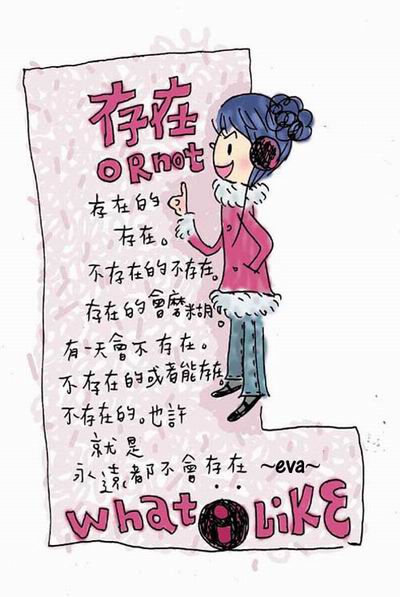 存在
ORnot
存在的
存在。
不存在的不存在。
存在的會磨糊。
有一天會不存在。
不存在的或者能存在。
不存在的。也許
就是
永遠都不會存在
~eva~
what i LiKE